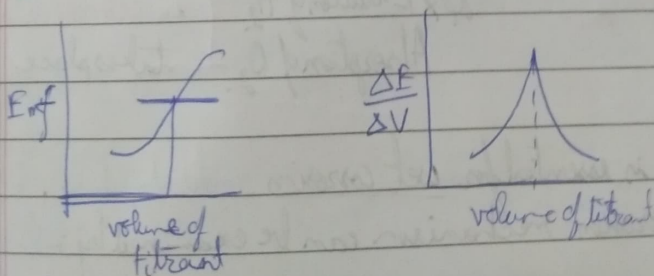 Emf
volume of
titrant
ΔE
ΔV
volume of titrant